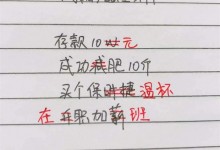 存款10元
成功肥10斤
买个保温杯
在职加班